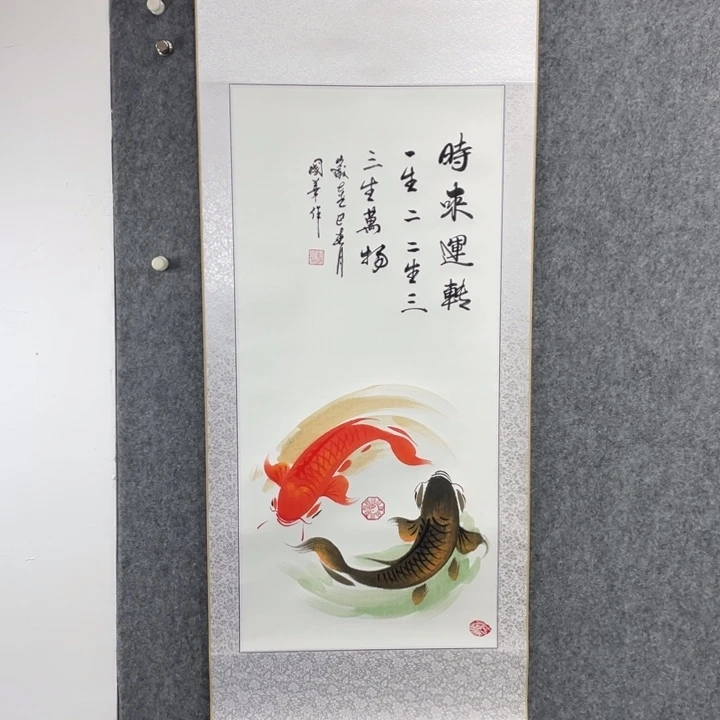 時來運轉
一生二二生三
三生萬物
歲在乙巳春月
國華作